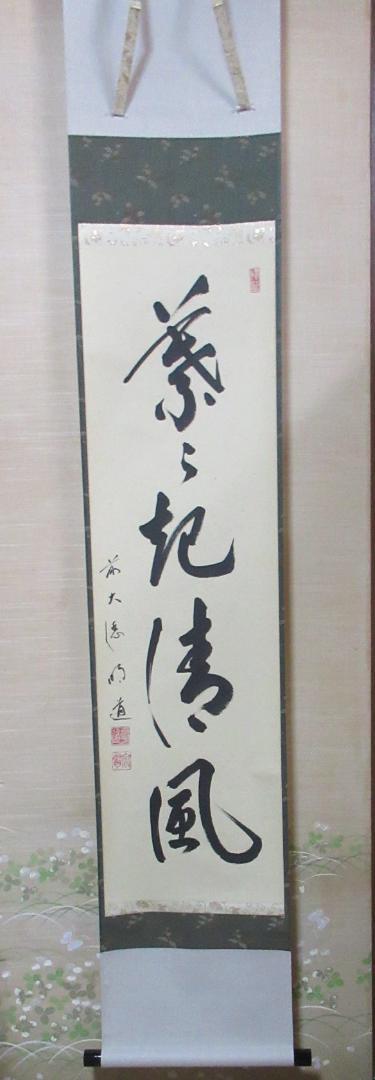 葉々起清風
前大徳明道